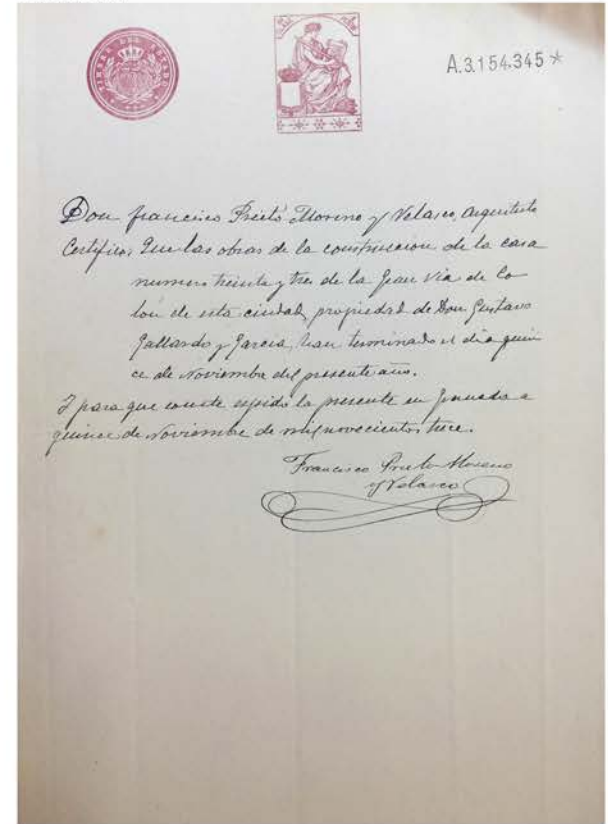 A.3.154.345 *
Don Francisco Prieto Moreno y Velasco, Arquitecto
Certifico: Que las obras de la construccion de la casa
numero treinta y tres de la Gran Via de Co
lon de esta ciudad, propiedad de Don Gustavo
Gallardo y Garcia, han terminado el dia quin
ce de Noviembre del presente año.
Y para que conste expido la presente en Granada a
quince de Noviembre de mil novecientos trece.
Francisco Prieto Moreno
y Velasco